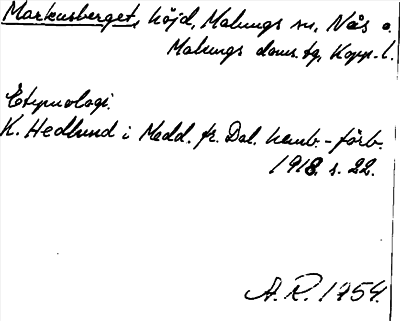 Markusberget, höjd, Malungs sn, Nås o.
Malungs doms. tg, Kopp. l.
Etymologi.
K. Hedlund i Medd. fr. Dal. hemb.-förb.
1918 s. 22.
A.R. 1754.